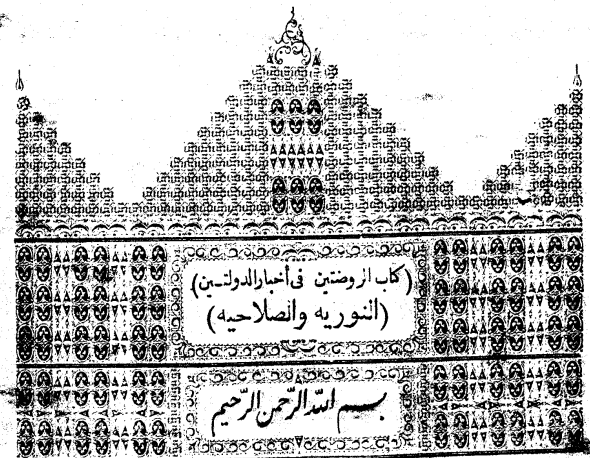 (كتاب الروضتين فى أخبار الدولتين)
(النوريه والصلاحيه)
بسم الله الرّحمن الرّحيم